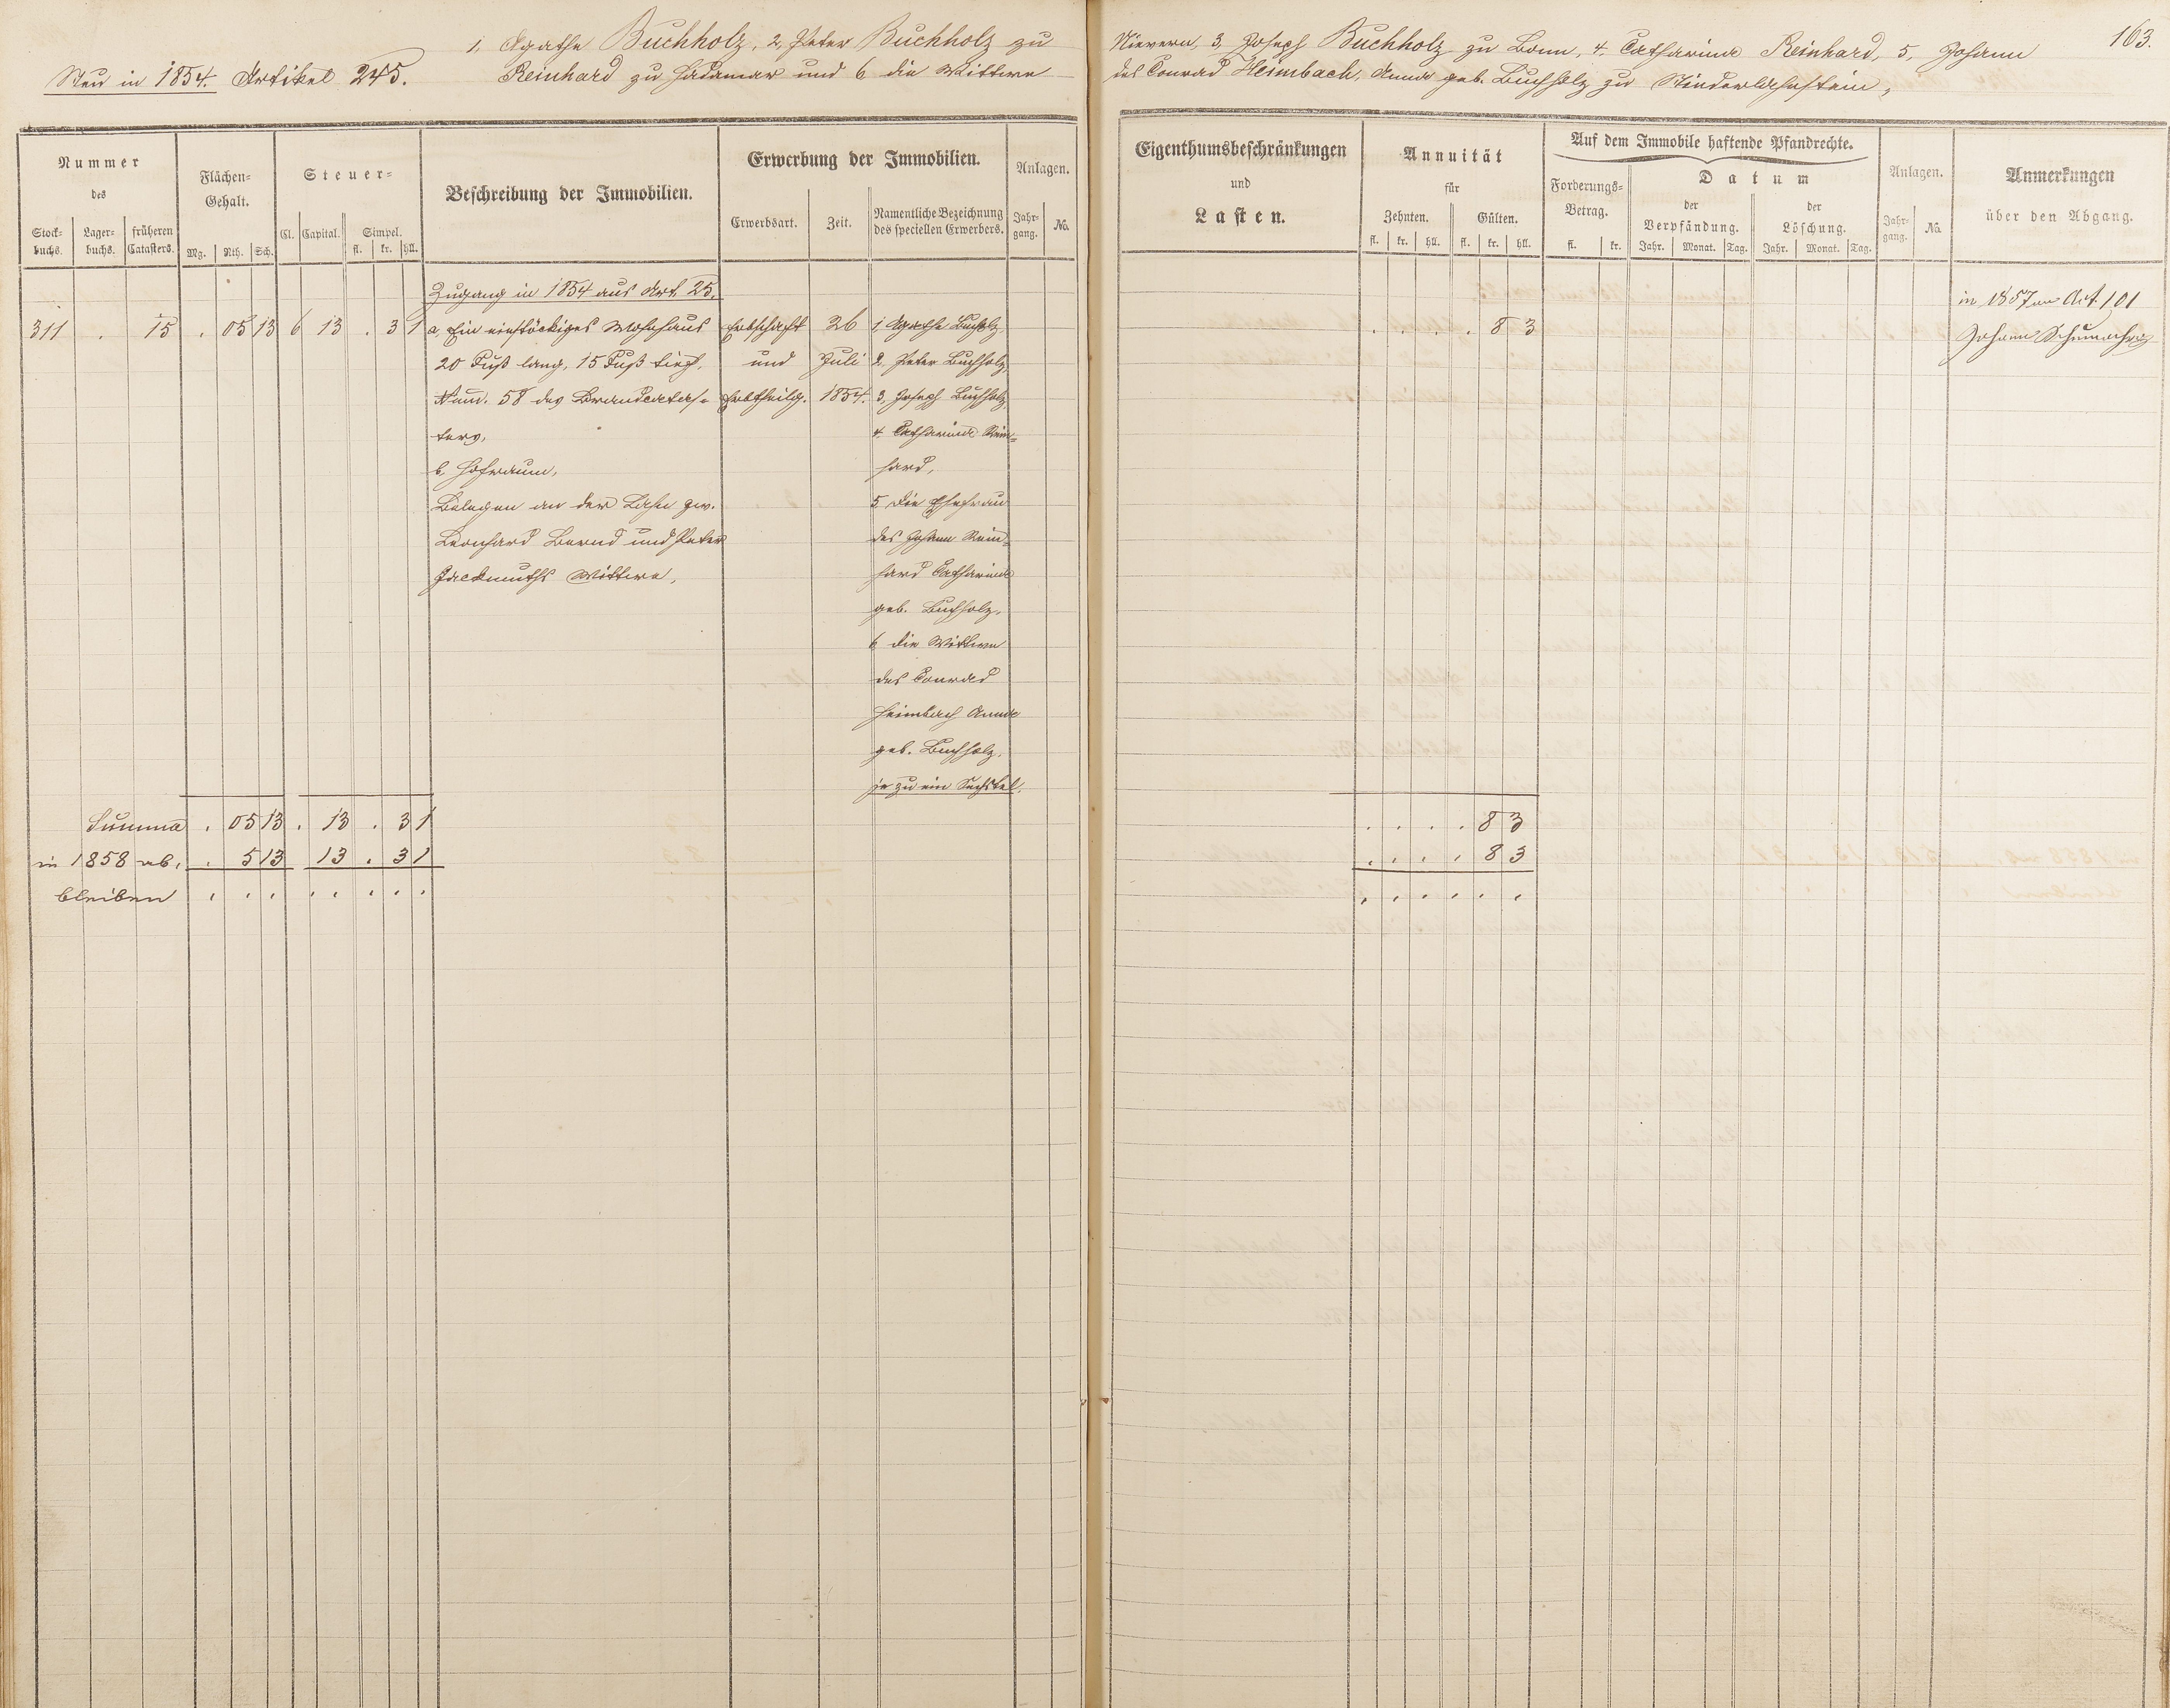 163.
1, Agathe Buchholz, 2, Peter Buchholz zu Nievern, 3, Joseph Buchholz zu Bonn, 4. Catharina Reinhard, 5, Johann
Neu in 1854. Artikel 245. Reinhard zu Hadamar und 6 die Wittwe des Conrad Heimbach, Anna geb. Buchholz zu Niederlahnstein,
Nummer
des
Stock-
buchs.
Lager-
buchs.
früheren
Catasters.
Flächen-
Gehalt.
Mg. Rth. Sch.
Steuer-
Cl. Capital. Simpel.
fl. kr. hll.
Beschreibung der Immobilien.
Erwerbung der Immobilien.
Erwerbsart. Zeit.
Namentliche Bezeichnung
des speciellen Erwerbers.
Anlagen.
Jahr-
gang.
No.
Eigenthumsbeschränkungen
und
Lasten.
Annuität
für
Zehnten. Gülten.
fl. kr. hll. fl. kr. hll.
Auf dem Immobile haftende Pfandrechte.
Forderungs-
Betrag.
fl. kr.
Datum
der
Verpfändung.
Jahr. Monat. Tag.
der
Löschung.
Jahr. Monat. Tag.
Anlagen.
Jahr-
gang.
No.
Anmerkungen
über den Abgang.
Zugang in 1854 aus Art. 25.
311 . 15 . 05 13 6 13 . 3 1
a, Ein einstöckiges Wohnhaus
20 Fuß lang, 15 Fuß tief,
Num. 58 des Brandcatas-
ters,
b, Hofraum,
Belegen an der Lahn zw.
Leonhard Bernd und Peter
Zuckmuths Wittwe,
Erbschaft
und
Erbtheilg.
26
Juli
1854.
1, Agathe Buchholz,
2, Peter Buchholz,
3, Joseph Buchholz,
4. Catharina Rein-
hard,
5, die Ehefrau
des Johann Rein-
hard Catharina
geb. Buchholz,
6 die Wittwe
des Conrad
Heimbach Anna
geb. Buchholz,
je zu ein Sechstel.
. . . . 8 3
in 1857 an Art. 101
Johann Schumacher
Summa . 05 13 . 13 . 3 1 . . . . 8 3
in 1858 ab, . 5 13 13 . 3 1 . . . . 8 3
bleiben . . . . . . . . . . . . . .